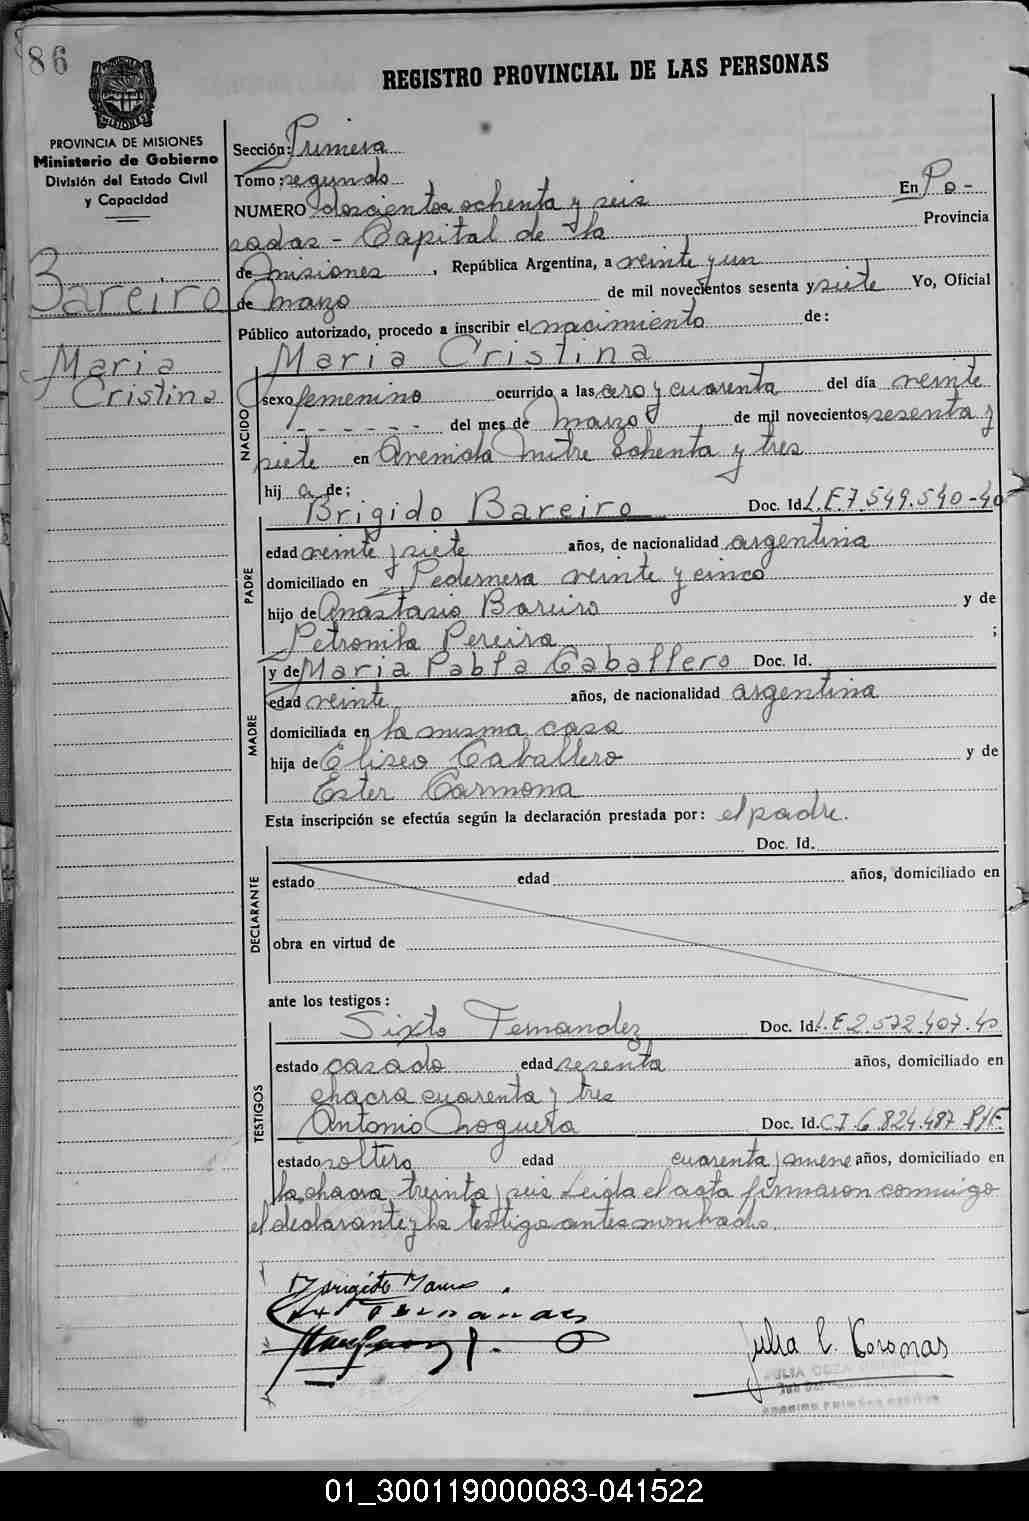 86
REGISTRO PROVINCIAL DE LAS PERSONAS
MISIONES
PROVINCIA DE MISIONES
Ministerio de Gobierno
División del Estado Civil
y Capacidad
Bareiro
Maria
Cristina
Sección: Primera
Tomo: segundo
NUMERO doscientos ochenta y seis En Po-
sadas - Capital de la Provincia
de misiones, República Argentina, a veinte y un
de marzo de mil novecientos sesenta y siete Yo, Oficial
Público autorizado, procedo a inscribir el nacimiento de:
Maria Cristina
NACIDO
sexo femenino ocurrido a las cero y cuarenta del día veinte
- - - - - - del mes de marzo de mil novecientos sesenta y
siete en Avenida Mitre ochenta y tres
hij a de;
Brigido Bareiro Doc. Id. L.E.7.549.540-40
PADRE
edad veinte y siete años, de nacionalidad argentina
domiciliado en Pedernera veinte y cinco
hijo de Anastasio Bareiro y de
Petronila Pereira ;
y de Maria Pabla Caballero Doc. Id.
MADRE
edad veinte años, de nacionalidad argentina
domiciliada en la misma casa
hija de Eliseo Caballero y de
Ester Carmona
Esta inscripción se efectúa según la declaración prestada por: el padre.
Doc. Id.
DECLARANTE
estado edad años, domiciliado en
obra en virtud de
ante los testigos:
Sixto Fernandez Doc. Id. L.E 2.572.407.40
TESTIGOS
estado casado edad sesenta años, domiciliado en
chacra cuarenta y tres
Antonio Noguera Doc. Id. C.I 6.824.487
estado soltero edad cuarenta y nueve años, domiciliado en
la chacra treinta y seis Leida el acta firmaron conmigo
el declarante y los testigos antes nombrados.
Julia C. Coronas
01_300119000083-041522